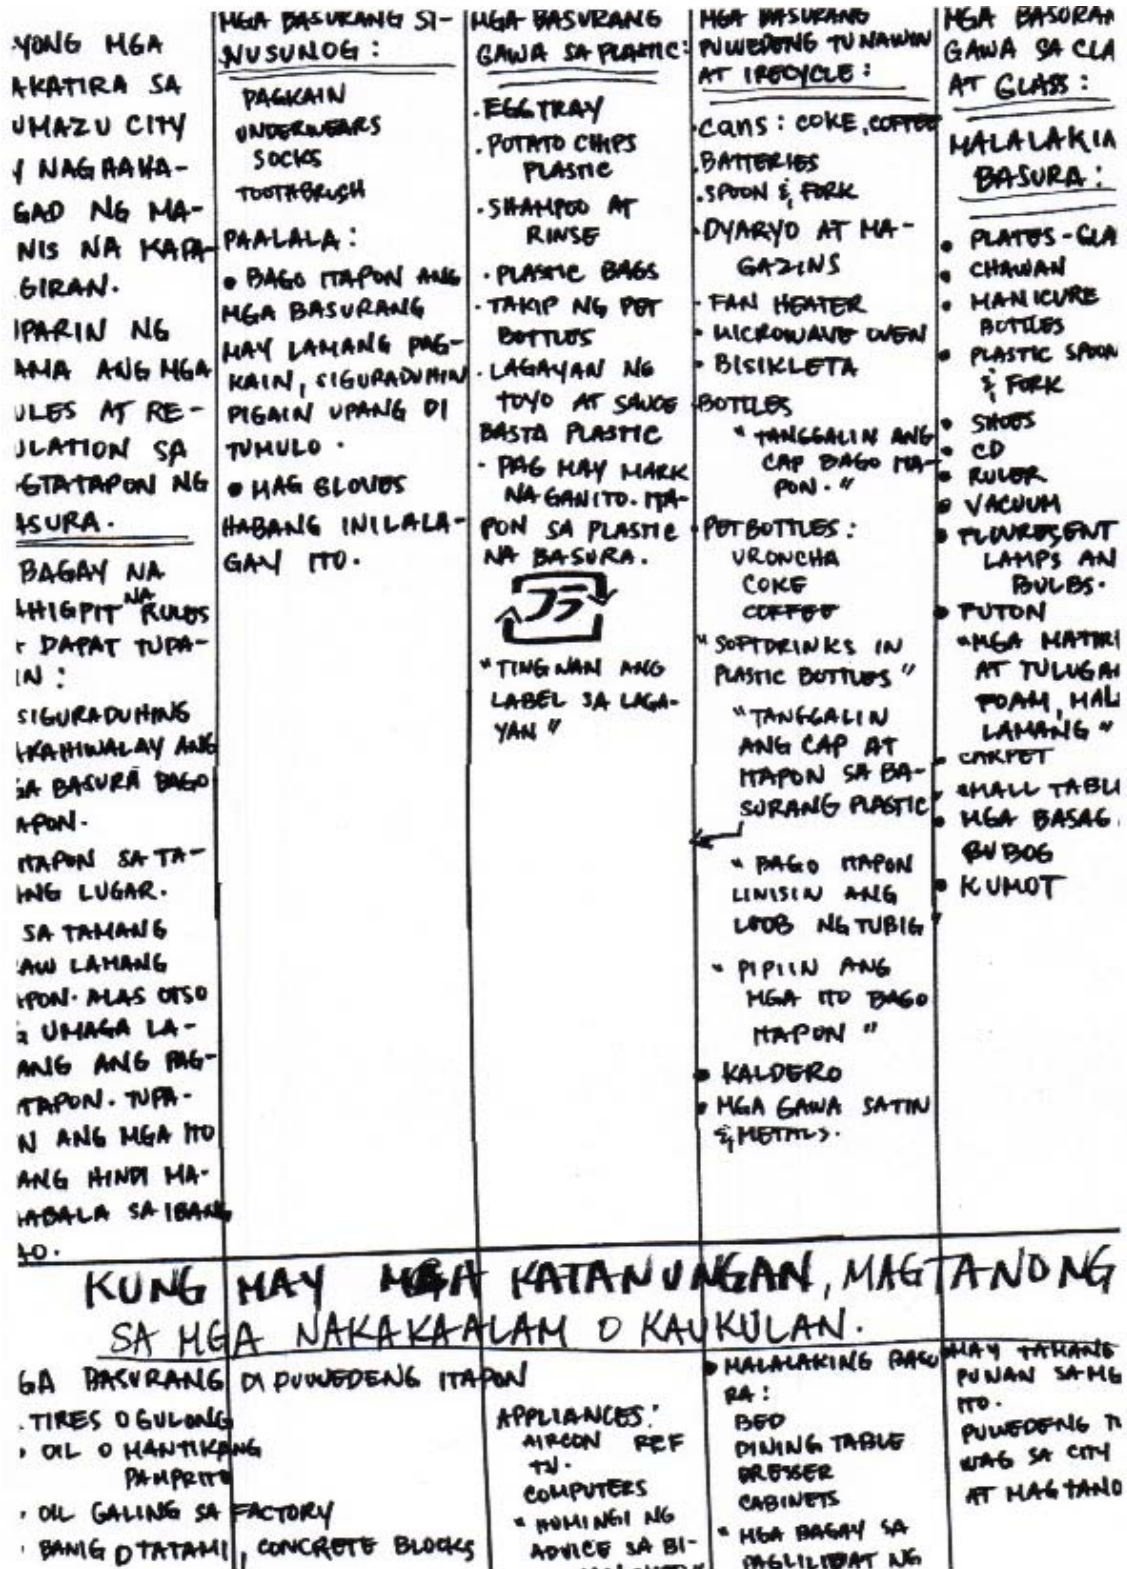 YONG MGA
AKATIRA SA
UMAZU CITY
Y NAGAAHA-
GAD NG MA-
NIS NA KAPA-
GIRAN.
IPARIN NG
AMA ANG MGA
ULES AT RE-
ULATION SA
GTATAPON NG
ASURA.
BAGAY NA
AHIGPIT NA RULES
DAPAT TUPA-
IN :
SIGURADUHING
AKAHIWALAY ANG
GA BASURA BAGO
APON.
ITAPON SA TA-
ANG LUGAR.
SA TAMANG
AW LAMANG
APON. ALAS OTSO
G UMAGA LA-
ANG ANG PAG-
TAPON. TUPA-
N ANG MGA ITO
ANG HINDI MA-
ABALA SA IBANG
AO.
MGA BASURANG SI-
NUSUNOG :
PAGKAIN
UNDERWEARS
SOCKS
TOOTHBRUSH
PAALALA :
• BAGO ITAPON ANG
MGA BASURANG
MAY LAMANG PAG-
KAIN, SIGURADUHIN
PIGAIN UPANG DI
TUMULO.
• MAG GLOVES
HABANG INILALA-
GAY ITO.
MGA BASURANG
GAWA SA PLASTIC:
. EGG TRAY
. POTATO CHIPS
PLASTIC
. SHAMPOO AT
RINSE
. PLASTIC BAGS
- TAKIP NG PET
BOTTLES
- LAGAYAN NG
TOYO AT SAUCE
BASTA PLASTIC
- PAG MAY MARK
NA GANITO. ITA-
PON SA PLASTIC
NA BASURA.
プラ
"TINGNAN ANG
LABEL SA LAGA-
YAN"
MGA BASURANG
PUWEDENG TUNAWIN
AT IRECYCLE :
. cans : COKE, COFFEE
. BATTERIES
. SPOON & FORK
. DYARYO AT MA-
GAZINS
- FAN HEATER
• MICROWAVE OVEN
• BISIKLETA
BOTTLES
"TANGGALIN ANG
CAP BAGO ITA-
PON."
• PET BOTTLES :
URONCHA
COKE
COFFEE
"SOFTDRINKS IN
PLASTIC BOTTLES"
"TANGGALIN
ANG CAP AT
ITAPON SA BA-
SURANG PLASTIC
"BAGO ITAPON
LINISIN ANG
LOOB NG TUBIG"
"PIPIIN ANG
MGA ITO BAGO
ITAPON"
• KALDERO
• MGA GAWA SA TIN
& METALS.
MGA BASURAN
GAWA SA CLA
AT GLASS :
MALALAKIN
BASURA :
• PLATES - CLA
• CHAWAN
• MANICURE
BOTTLES
• PLASTIC SPOON
& FORK
• SHOES
• CD
• RULER
• VACUUM
• FLOURESENT
LAMPS AN
BULBS.
• FUTON
"MGA MATIRI
AT TULUGAN
FOAM, MAL
LAMANG"
• CARPET
• SMALL TABLE
• MGA BASAG.
BUBOG
• KUMOT
KUNG MAY MGA KATANUNGAN, MAGTANONG
SA MGA NAKAKAALAM O KAUKULAN.
GA BASURANG DI PUWEDENG ITAPON
. TIRES O GULONG
• OIL O MANTIKANG
PAMPRITO
• OIL GALING SA FACTORY
• BANIG O TATAMI, CONCRETE BLOCKS
APPLIANCES:
AIRCON REF
TV.
COMPUTERS
"HUMINGI NG
ADVICE SA BI-
• MALALAKING BASU
RA :
BED
DINING TABLE
DRESSER
CABINETS
"MGA BAGAY SA
PAGLILIPAT NG
MAY TAMANG
PUNAN SA MG
ITO.
PUWEDENG T
WAG SA CITY
AT MAGTANO